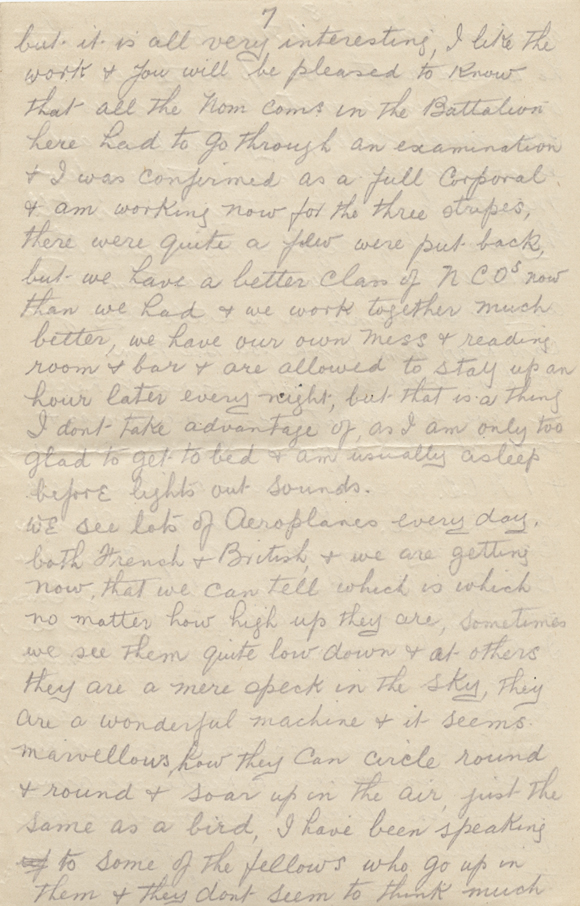 7
but it is all very interesting, I like the
work & you will be pleased to know
that all the Nom Coms in the Battalion
here had to go through an examination
& I was confirmed as a full Corporal.
& am working now for the three stripes,
there were quite a few were put back,
but we have a better class of N C Os now
than we had & we work together much
better, we have our own mess & reading
room & bar & are allowed to stay up an
hour later every night, but that is a thing
I dont take advantage of, as I am only too
glad to get to bed & am usually asleep
before lights out sounds.
WE see lots of Aeroplanes every day.
both French & British, & we are getting
now, that we can tell which is which
no matter how high up they are, sometimes
we see them quite low down & at others
they are a mere speck in the sky, they
are a wonderful machine & it seems
marvellous, how they can circle round
& round & soar up in the air, just the
same as a bird, I have been speaking
to some of the fellows who go up in
them & they dont seem to think much